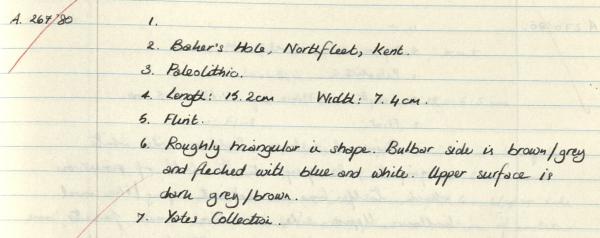 A. 267'80 1.
2. Baker's Hole, Northfleet, Kent.
3. Paleolithic.
4. Length: 15.2cm Width: 7.4cm.
5. Flint.
6. Roughly triangular in shape. Bulbar side is brown/grey
and flecked with blue and white. Upper surface is
dark grey/brown.
7. Yates Collection.